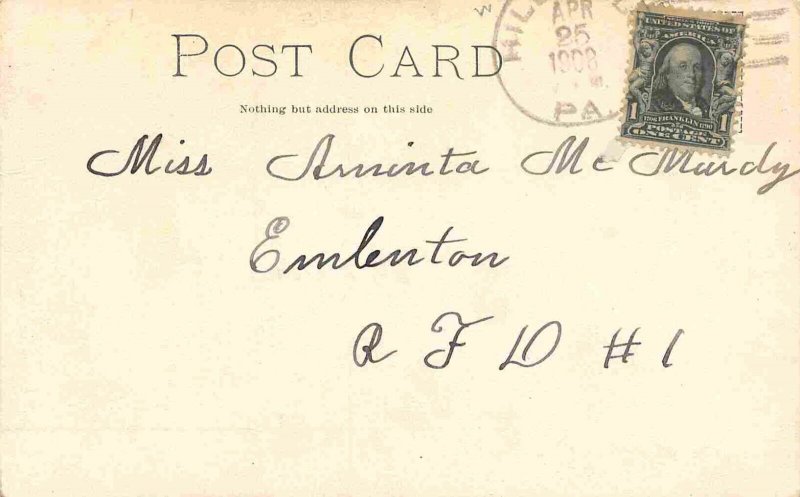 POST CARD
Nothing but address on this side
APR
25
1908
PA.
UNITED STATES OF
AMERICA
1 FRANKLIN 1
POSTAGE
ONE CENT
Miss Aminta Mc Murdy
Emlenton
R F D #1